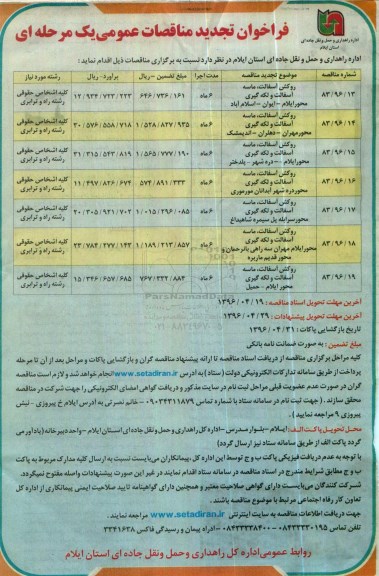 فراخوان تجدید مناقصات عمومی یک مرحله ای
اداره راهداری و حمل و نقل جاده ای
استان ایلام
اداره راهداری و حمل و نقل جاده ای استان ایلام در نظر دارد نسبت به برگزاری مناقصات ذیل اقدام نماید:
شماره مناقصه موضوع تجدید مناقصه مدت اجرا مبلغ تضمین –ریال برآورد- ریال رشته مورد نیاز
۸۳/۹۶/۱۳ روکش آسفالت، ماسه آسفالت و لکه گیری محور ایلام –ایوان –اسلام آباد ۶ ماه ۶۴۶/۷۳۶/۱۶۱ ۱۲/۹۳۴/۷۲۳/۲۲۳ کلیه اشخاص حقوقی رشته راه و ترابری
۸۳/۹۶/۱۴ روکش آسفالت، ماسه آسفالت و لکه گیری محور مهران –دهلران –اندیمشک ۶ ماه ۱/۵۲۸/۸۲۷/۹۳۵ ۳۰/۵۷۶/۵۵۸/۷۱۸ کلیه اشخاص حقوقی رشته راه و ترابری
۸۳/۹۶/۱۵ روکش آسفالت، ماسه آسفالت و لکه گیری محور ایلام –دره شهر – پلدختر ۶ ماه ۱/۵۶۵/۷۷۷/۱۹۰ ۳۱/۳۱۵/۵۴۳/۸۱۹ کلیه اشخاص حقوقی رشته راه و ترابری
۸۳/۹۶/۱۶ روکش آسفالت، ماسه آسفالت و لکه گیری محور دره شهر آبدانان مورموری ۶ ماه ۵۷۴/۸۹۱/۳۳۳ ۱۱/۴۹۷/۸۲۶/۶۷۴ کلیه اشخاص حقوقی رشته راه و ترابری
۸۳/۹۶/۱۷ روکش آسفالت، ماسه آسفالت و لکه گیری محور سرابله پل سیمره شاهیداغ ۶ ماه ۱/۰۱۵/۲۹۶/۰۸۵ ۲۰/۳۰۵/۹۲۱/۷۰۲ کلیه اشخاص حقوقی رشته راه و ترابری
۸۳/۹۶/۱۸ روکش آسفالت، ماسه آسفالت و لکه گیری محور ایلام مهران سه راهی بانرحمان و محور قدیم ماربره ۶ ماه ۱/۱۸۹/۲۱۳/۸۵۷ ۲۳/۷۸۴/۲۷۷/۱۴۳ کلیه اشخاص حقوقی رشته راه و ترابری
۸۳/۹۶/۱۹ روکش آسفالت، ماسه آسفالت و لکه گیری محور ایلام – حمیل ۶ ماه ۷۶۷/۳۳۲/۸۸۳ ۱۵/۳۴۶/۶۵۷/۶۸۵ کلیه اشخاص حقوقی رشته راه و ترابری
آخرین مهلت تحویل اسناد مناقصه: ۱۹ / ۰۴ / ۱۳۹۶
آخرین مهلت تحویل پیشنهادات : ۲۹ / ۰۴ / ۱۳۹۶
تاریخ بازگشایی پاکات : ۳۱ / ۰۴ / ۱۳۹۶
مبلغ تضمین : به صورت ضمانت نامه بانکی
کلیه مراحل برگزاری مناقصه از دریافت اسناد مناقصه تا ارائه پیشنهاد مناقصه گران و بازگشایی پاکات و مراحل بعد از آن تا مرحله
پرداخت از طریق سامانه تدارکات الکترونیکی دولت (ستاد) به آدرس www.setadiran.ir انجام خواهد شد و لازم است مناقصه
گران در صورت عدم عضویت قبلی مراحل ثبت نام در سایت مذکور و دریافت گواهی امضای الکترونیکی را جهت شرکت در مناقصه
محقق سازند. ( جهت ثبت نام در سامانه ستاد با شماره تماس ۰۹۰۳۴۳۱۱۸۷۹ – خانم نصرتی به آدرس ایلام خ پیروزی – نبش
پیروزی ۹ مراجعه نمایید ).
محل تحویل پاکت الف: ایلام –بلوار مدرس –اداره کل راهداری و حمل و نقل جاده ای استان ایلام –واحد دبیرخانه (یادآور می
گردد پاکت الف از طریق سامانه ستاد نیز ارسال گردد)
با توجه به عدم دریافت فیزیکی پاکت ب و ج توسط این اداره کل، پیمانکاران می بایست نسبت به ارسال کلیه مدارک مربوط به پاکت
ب و ج مطابق شرایط مندرج در اسناد مناقصه در سامانه ستاد اقدام نمایند در غیر این صورت پیشنهادات واصله مفتوح نمیگردد.
شرکت کنندگان می بایست دارای گواهی صلاحیت معتبر و همچنین دارای گواهینامه تایید صلاحیت ایمنی پیمانکاری از اداره کل
تعاون کار رفاه اجتماعی مرتبط با موضوع مناقصه باشند.
جهت دریافت اطلاعات مناقصه به سایت اینترنتی www.setadiran.ir مراجعه نمایند.
تلفن تماس ۰۸۴۳۳۳۳۰۱۹۵ – ۰۸۴۳۳۳۳۸۴۰۰ –اداره پیمان و رسیدگی فاکس ۳۳۴۱۶۳۸
روابط عمومی اداره کل راهداری و حمل و نقل جاده ای استان ایلام